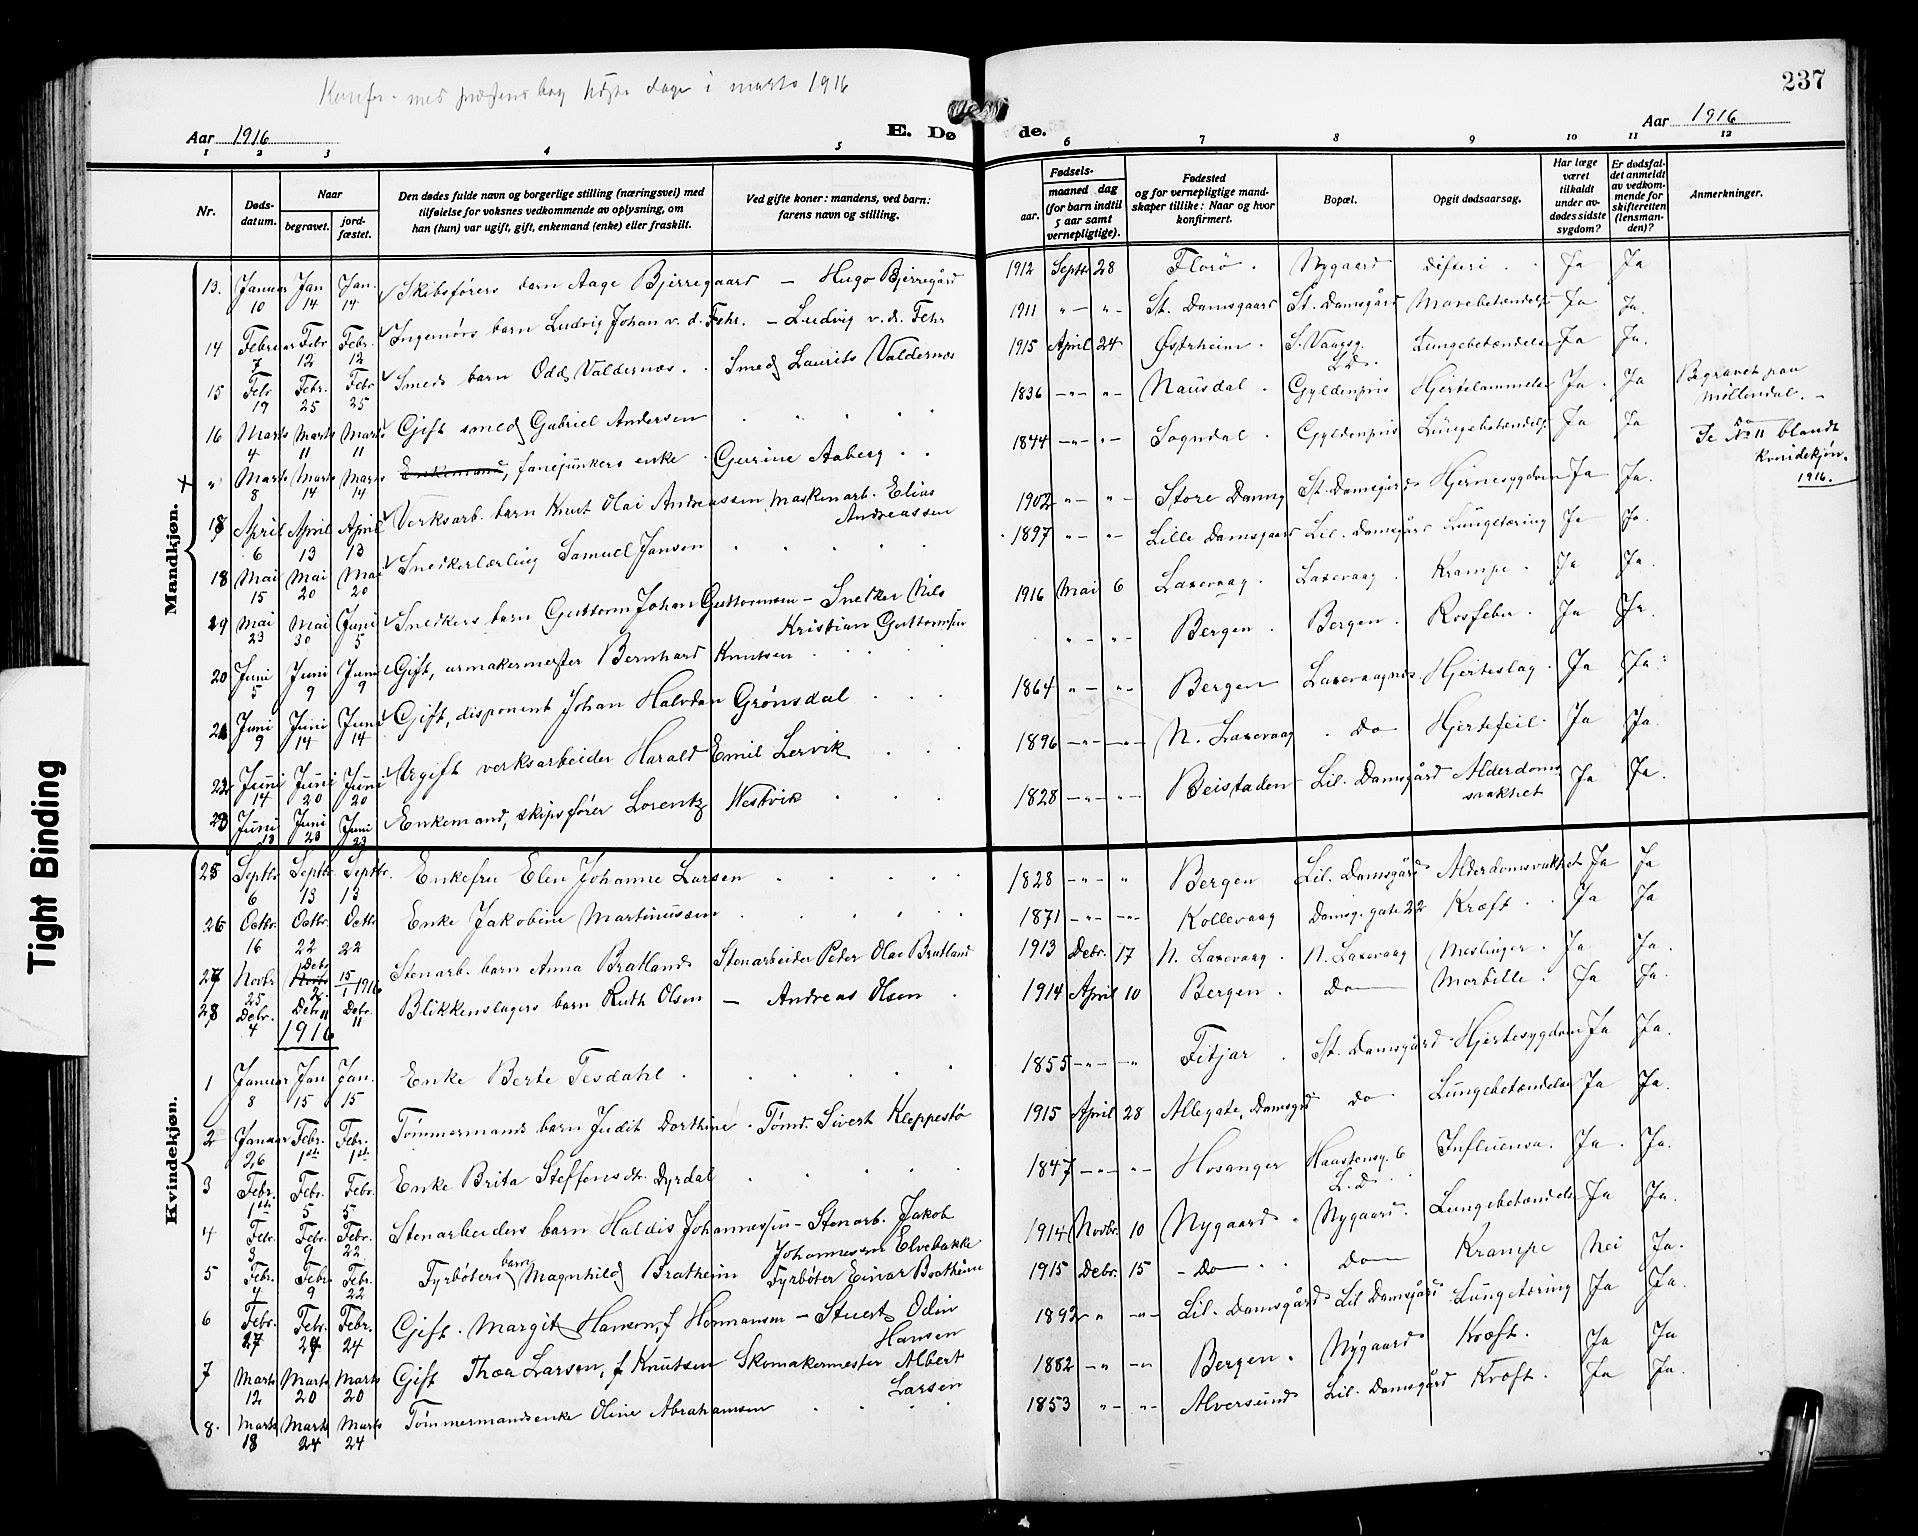 Konfr. med præstens bog dager i marts 1916
237
Aar 1916
E. Dø
de.
Aar 1916
1 2 3 4 5 6 7 8 9 10 11 12
Nr.
Døds-datum.
Naar
begravet.
jord-fæstet.
Den dødes fulde navn og borgerlige stilling (næringsvei) med tilføielse for voksnes vedkommende av oplysning, om han (hun) var ugift, gift, enkemand (enke) eller fraskilt.
Ved gifte koner: mandens, ved barn: farens navn og stilling.
Fødsels-
aar.
maaned dag
(for barn indtil 5 aar samt vernepligtige).
Fødested og for vernepligtige mandskaper tillike: Naar og hvor konfirmert.
Bopæl.
Opgit dødsaarsag.
Har læge været tilkaldt under avdødes sidste sygdom?
Er dødsfaldet anmeldt av vedkommende for skifteretten (lensmanden)?
Anmerkninger.
Mandkjøn.
13. Januar 10 Jan 14 Jan. 14 Skibsførers barn Aage Bjerregaard — Hugo Bjerregård 1912 Septr. 28 Florø. Nygaard difteri. Ja Ja
14 Februar 7 Febr 12 Febr. 12 Ingeniørs barn Ludvig Johan v. d. Fehr. — Ludvig v. d. Fehr 1911 " — " — St. Damsgaard St. Damsgård Mavebetændelse Ja Ja.
15 Febr 19 Febr. 25 Febr 25 Smeds barn Odd Valdernæs. Smed Laurits Valdernæs 1915 April 24 Østrheim. S. Vaagsg. L.D. Lungebetændelse Ja Ja.
16 Marts 4 Marts 11 Marts 11 Gift smed Gabriel Andersen 1836 — " — " — Nausdal. Gyldenpris Hjertelammelse Ja. Ja Begravet paa Møllendal. —
" Marts 8 Marts 14 Marts 14 Enkemand, fanejunkers enke Gurine Aaberg 1844 — " — " — Sogndal. Gyldenpris Lungebetændelse Ja Ja Se No 11 blandt Kvindekjøn. 1916.
17 April 6 April 13 April 13 Verksarb. barn Knut Olai Andreassen maskinarb. Elias Andreassen 1902 " — " Store Damsg St. Damsgård Hjernesygdom Ja Ja.
18 Mai 15 Mai 20 Mai 20 Snedkerlærling Samuel Jansen 1897 " — " — Lille Damsgaard Lil. Damsgård Lungetæring Ja Ja.
19 Mai 23 Mai 30 Juni 5 Snedkers barn Guttorm Johan Guttormsen — Snedker Nils Kristian Guttormsen 1916 Mai 6 Laxevaag. Laxevaag. Krampe. Ja Ja.
20 Juni 5 Juni 9 Juni 9 Gift, urmakermester Bernhard Knutsen " — " — Bergen. Bergen. Rosfeber. Ja Ja.
21 Juni 9 Juni 14 Juni 14 Gift, disponent Johan Halvdan Grønsdal 1864 " — " — Bergen Laxevaagnes Hjerteslag. Ja Ja.
22 Juni 14 Juni 20 Juni 20 Ugift verksarbeider Harald Emil Lervik 1896 — " — — " — N. Laxevaag Do Hjertefeil. Ja Ja.
23 Juni 18 Juni 23 Juni 23 Enkemand, skipsfører Lorentz Westvik 1828 — " — " — Beistaden Lil. Damsgård Alderdomssvakhet Ja Ja.
Kvindekjøn.
25 Septbr. 6 Septbr. 13 Septbr. 13 Enkefru Elen Johanne Larsen 1828 — " — " Bergen Lil. Damsgård Alderdomsvakhet Ja Ja
26 Octbr. 16 Octbr. 22 Octbr 22 Enke Jakobine Martinussen 1871 — " — — " — Kollevaag Damsg. gate 22 Kræft. Ja Ja
27 Novbr. 25 Debr. 2. 15/1 1916 Stenarb. barn Anna Bratland Stenarbeider Peder Olai Bratland 1913 Debr. 17 N. Laxevaag. N. Laxevaag Meslinger. Ja Ja.
28 Debr. 4 Debr 11 Debr. 11 Blikkenslagers barn Ruth Olsen — Andreas Olsen 1914 April 10 Bergen. Do Morbille. Ja Ja.
1916
1 Januar 8 Jan 15 Jan. 15 Enke Berte Tesdahl. 1855 — " — " Fitjar. St. Damsgård Hjertesygdom Ja Ja.
2 Januar 26 Febr. 1ste Febr. 1ste Tømmermands barn Judit Dorthine. Tømd. Sivert Kleppestø 1915 April 28 Allegate, Damsgrd Do Lungebetændelse Ja Ja.
3 Febr. 1ste Febr. 5 Febr. 5 Enke Brita Steffensdtr. Dyrdal 1847 — " — " — Hosanger Haastensg. 6 L. D. Influensa. Ja. Ja.
4 Febr. 3 Febr. 9 Febr. 22 Stenarbeiders barn Haldis Johannessen — Stenarb. Jakob Johannessen Elvebakke 1914 Novbr. 10 Nygaard. Nygaard. Lungebetændelse Ja Ja.
5 Febr. 4 Febr. 9 Febr. 22 Fyrbøters barn Magnhild Bratheim Fyrbøter Einar Bratheim 1915 Debr. 15 — Do Do Krampe Nei Ja.
6 Febr. 27 Febr. 24 Febr. 24 Gift. Margit Hansen, f Hermansen — Stuert Odin Hansen 1892 " — " — Lil. Damsgård Lil Damsgård Lungetæring Ja Ja.
7 Marts 12 Marts 20 Marts 20 Gift Thea Larsen, f. Knutsen Skomakermester Albert Larsen 1882 — " — " Bergen. Nygaard Kræft. Ja Ja
8. Marts 18 Marts 24 Marts 24 Tømmermandsenke Oline Abrahamsen 1853 " — " — Alversund Lil. Damsgård Kræft. Ja Ja.
Tight Binding